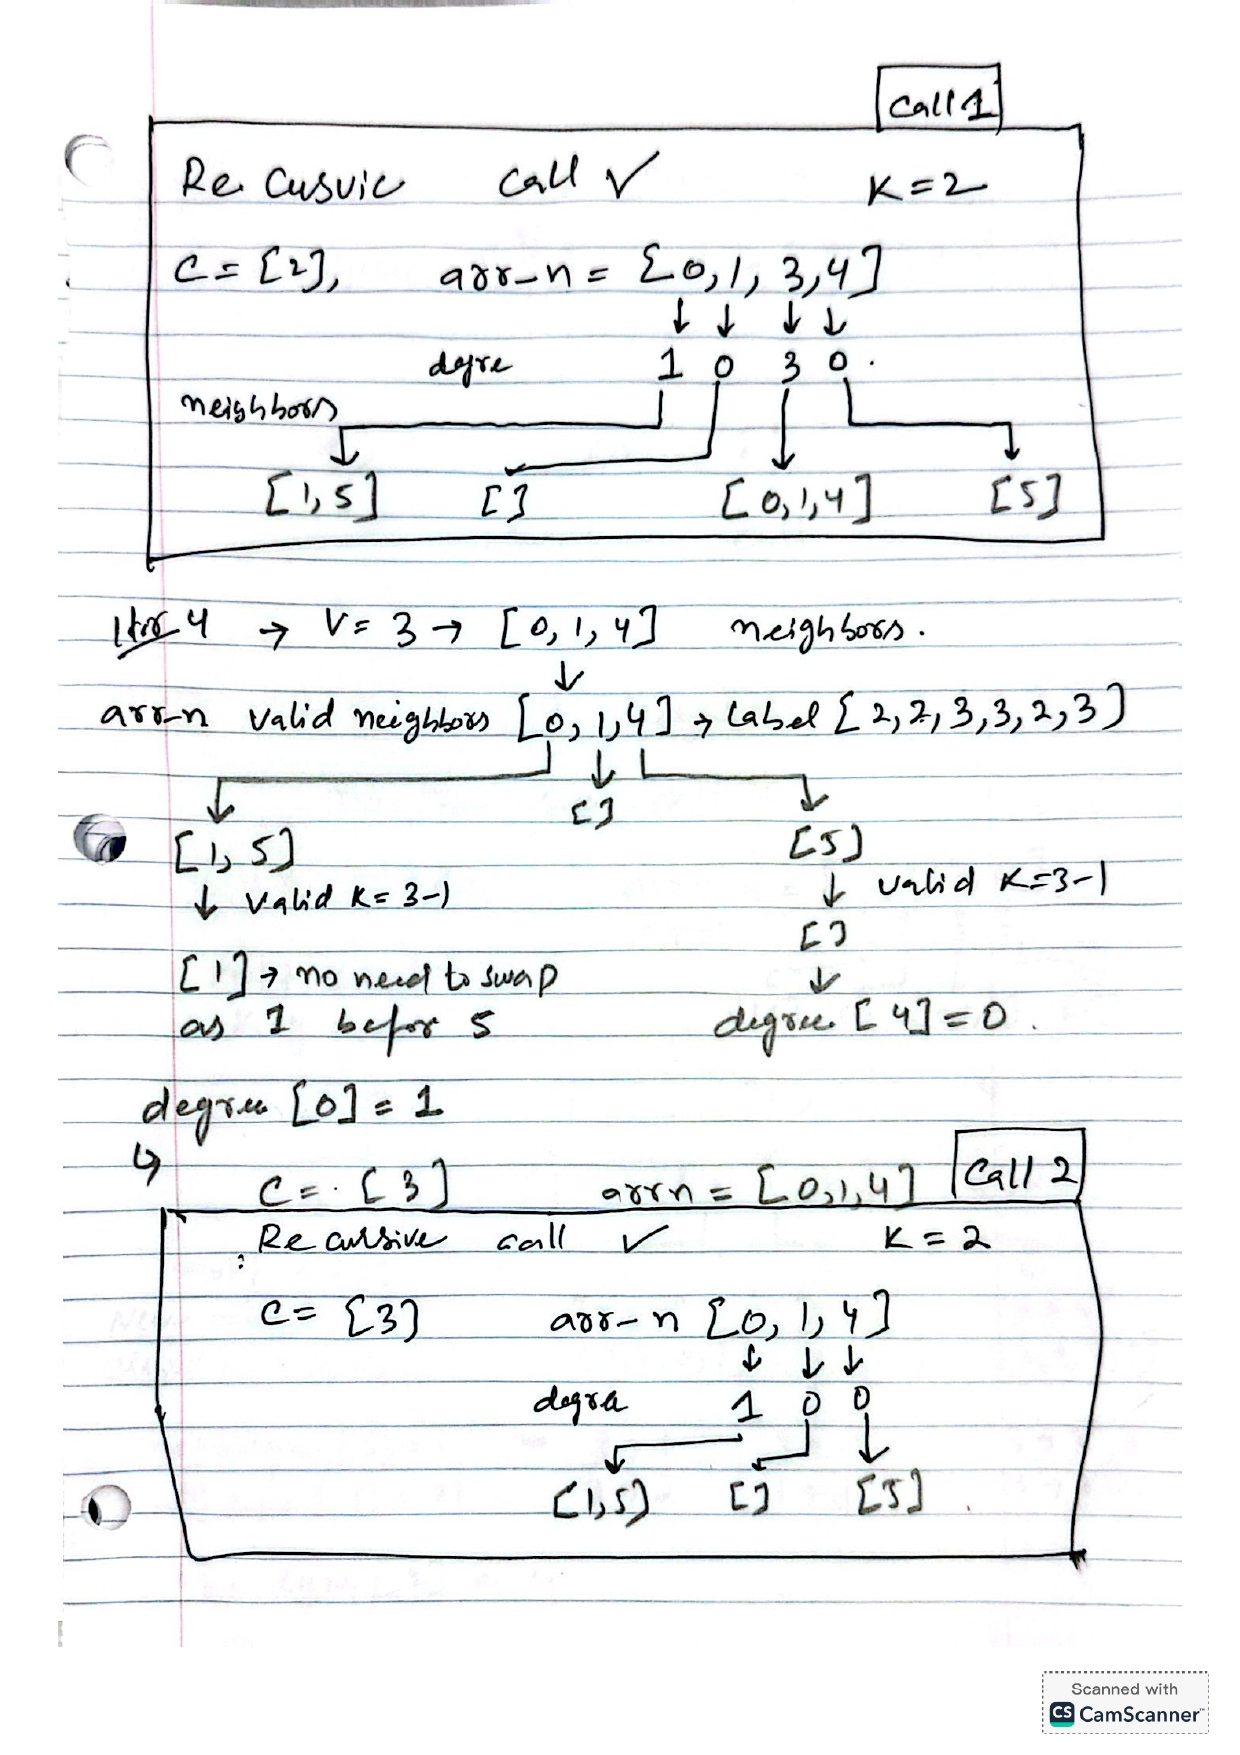 Call 1
Recusvic call ✓ K=2
C = [2], arr_n = [0, 1, 3, 4]
↓ ↓ ↓ ↓
degre 1 0 3 0.
neighbors
[1, 5] [] [0, 1, 4] [5]
Iter 4 → V = 3 → [0, 1, 4] neighbors.
↓
arr_n valid neighbors [0, 1, 4] → Label [2, 2, 3, 3, 2, 3]
[]
[1, 5] [5]
↓ valid K = 3-1 ↓ valid K=3-1
[]
[1] → no need to swap ↓
as 1 befor 5 degree [4] = 0.
degree [0] = 1
↳ C = [3] arrn = [0, 1, 4] Call 2
Recursive call ✓ K = 2
C = [3] arr-n [0, 1, 4]
↓ ↓ ↓
degre 1 0 0
[1, 5] [] [5]
Scanned with
CS CamScanner